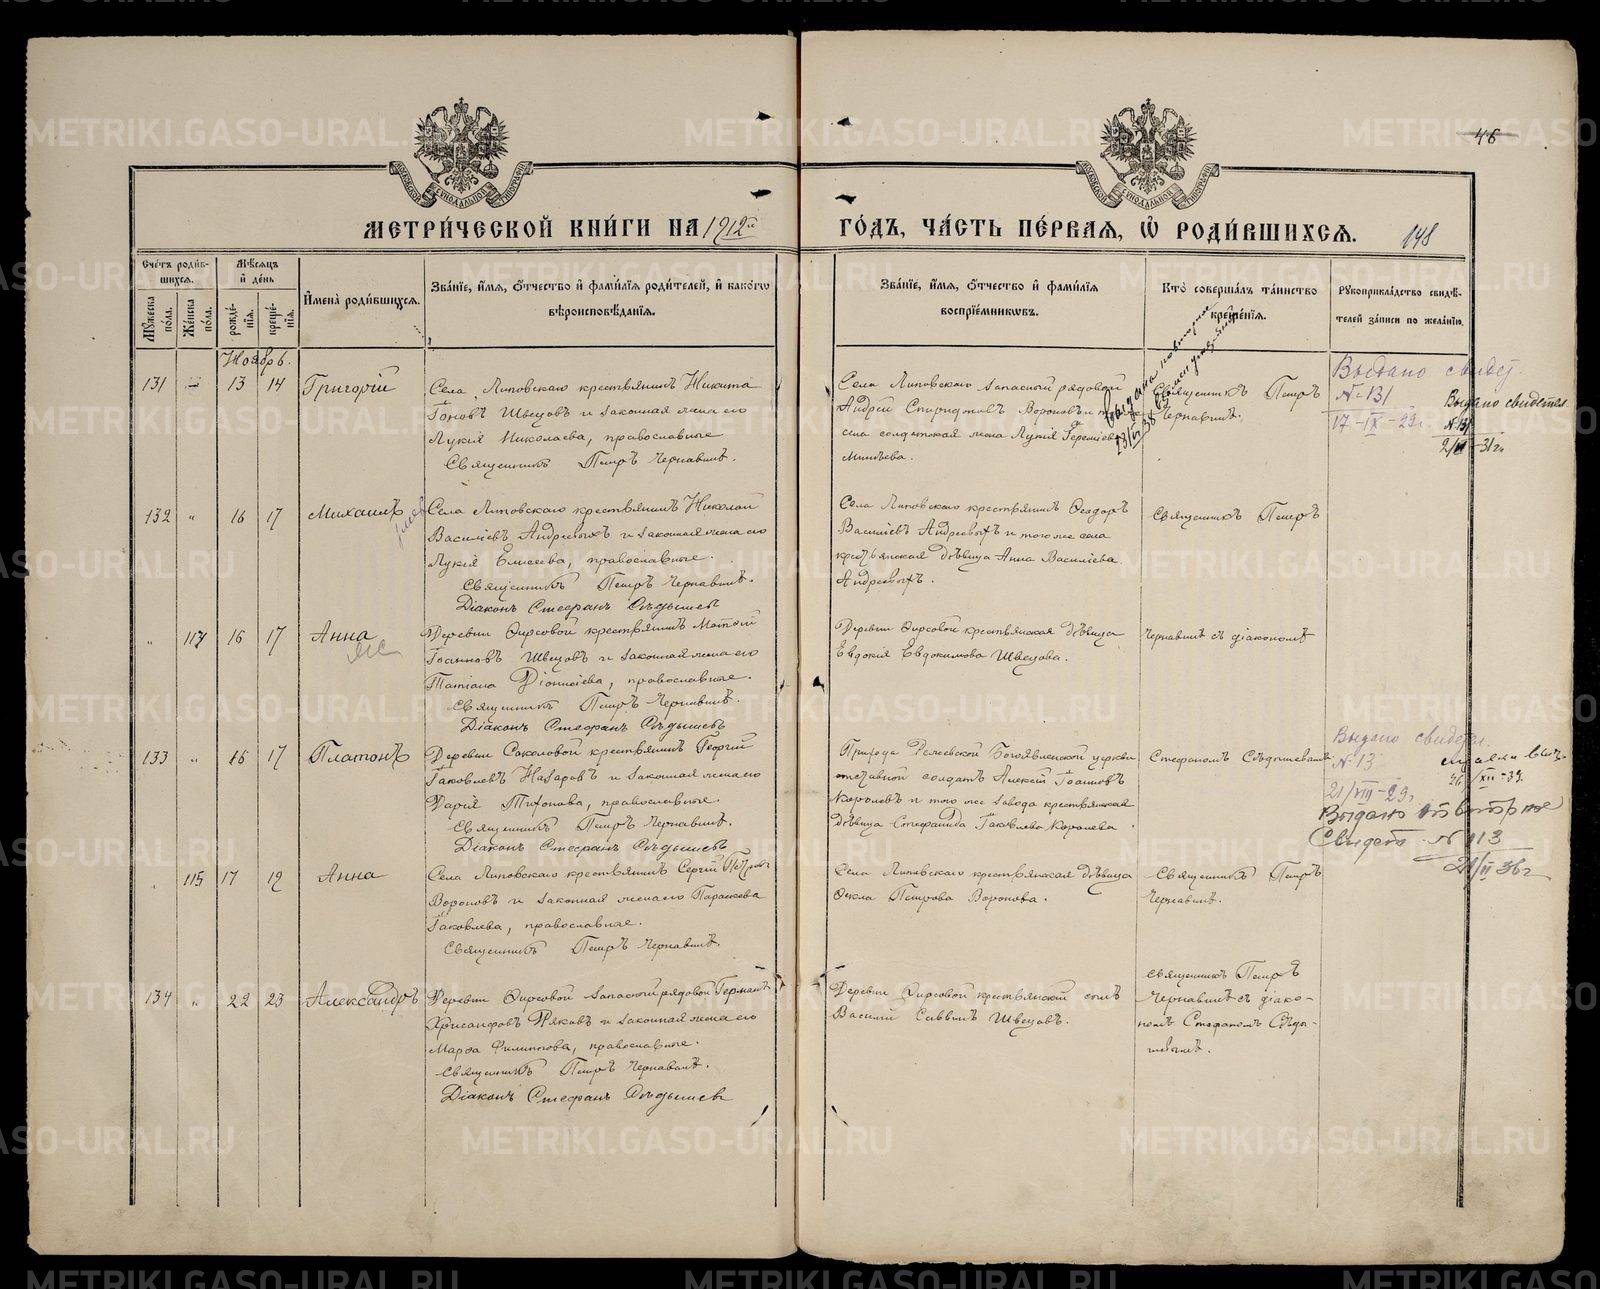 МЕТРИ́ЧЕСКОЙ КНИ́ГИ НА 1912й ГО́ДЪ, ЧА́СТЬ ПЕ́РВАЯ, Ѡ҆ РОДИ́ВШИХСЯ.
46
148
Сче́тъ роди́в-
шихся.
Му́жеска по́ла.
Же́нска по́ла.
Мѣ́сяцъ
и҆ де́нь
рожде́-
нїя.
креще́-
нїя.
И҆мена̀ роди́вшихся.
Зва́нїе, и҆́мя, ѻ҆́тчество и҆ фами́лїя роди́телей, и҆ како́гѡ
вѣроисповѣ́данїя.
Зва́нїе, и҆́мя, ѻ҆́тчество и҆ фами́лїя
воспрїе́мникѡвъ.
Кто̀ соверша́лъ та́инство
креще́нїя.
Рукоприкла́дство свидѣ́-
телей за́писи по жела́нїю.
Ноябрь.
131 13 14 Григорій
Села Липовскаго крестьянинъ Никита
Швецовъ и законная жена его
Лукія Николаева, православные
Священникъ Петръ Чернавинъ.
Села Липовскаго запасный рядовой
Андрей Спиридоновъ Вороновъ и
села солдатская жена Лукія
Минѣева.
Священникъ Петръ
Чернавинъ.
Выдано свидет.
№ 131
17-IX-29г.
Выдано свидетел
№ 131
132 " 16 17 Михаилъ
Села Липовскаго крестьянинъ Николай
Василіевъ Андреевыхъ и законная жена его
Лукія Елисеева, православные.
Священникъ Петръ Чернавинъ.
Діаконъ Стефанъ Сѣдышевъ
Села Липовскаго крестьянинъ Ѳеодоръ
Василіевъ Андреевыхъ и того же села
крестьянская дѣвица Анна Василіева
Андреевыхъ.
Священникъ Петръ
" 114 16 17 Анна
Деревни Фирсовой крестьянинъ
Іоанновъ Швецовъ и законная жена его
Татіана Діонисіева, православные.
Священникъ Петръ Чернавинъ.
Діаконъ Стефанъ Сѣдышевъ
Деревни Фирсовой крестьянская дѣвица
Евдокія Евдокимова Швецова.
Чернавинъ съ діакономъ
133 " 16 17 Платонъ
Деревни Соколовой крестьянинъ Георгій
Іаковлевъ Назаровъ и законная жена его
Дарія Тифонова, православные.
Священникъ Петръ Чернавинъ.
Діаконъ Стефанъ Сѣдышевъ
Режевской Богоявленской церкви
отставной солдатъ Алексій Іоанновъ
Королевъ и того же завода крестьянская
дѣвица Стефанида Іаковлева Королева.
Стефаномъ Сѣдышевымъ
Выдано свидетел.
№ 13
21/VIII-29г
Выдано повторное
Свидет. № 113
" 115 17 19 Анна
Села Липовскаго крестьянинъ Сергій Петровъ
Вороновъ и законная жена его Параскева
Іаковлева, православные.
Священникъ Петръ Чернавинъ.
Села Липовскаго крестьянская дѣвица
Ѳекла Петрова Воронова.
Священникъ Петръ
Чернавинъ.
134 " 22 23 Александръ
Деревни Фирсовой запасный рядовой Германъ
Хрисанфовъ Ряковъ и законная жена его
Марфа Филиппова, православные.
Священникъ Петръ Чернавинъ.
Діаконъ Стефанъ Сѣдышевъ
Деревни Фирсовой крестьянскій сынъ
Василій Саввинъ Швецовъ.
Священникъ Петръ
Чернавинъ съ діако-
номъ Стефаномъ Сѣды-
шевымъ.
METRIKI.GASO-URAL.RU